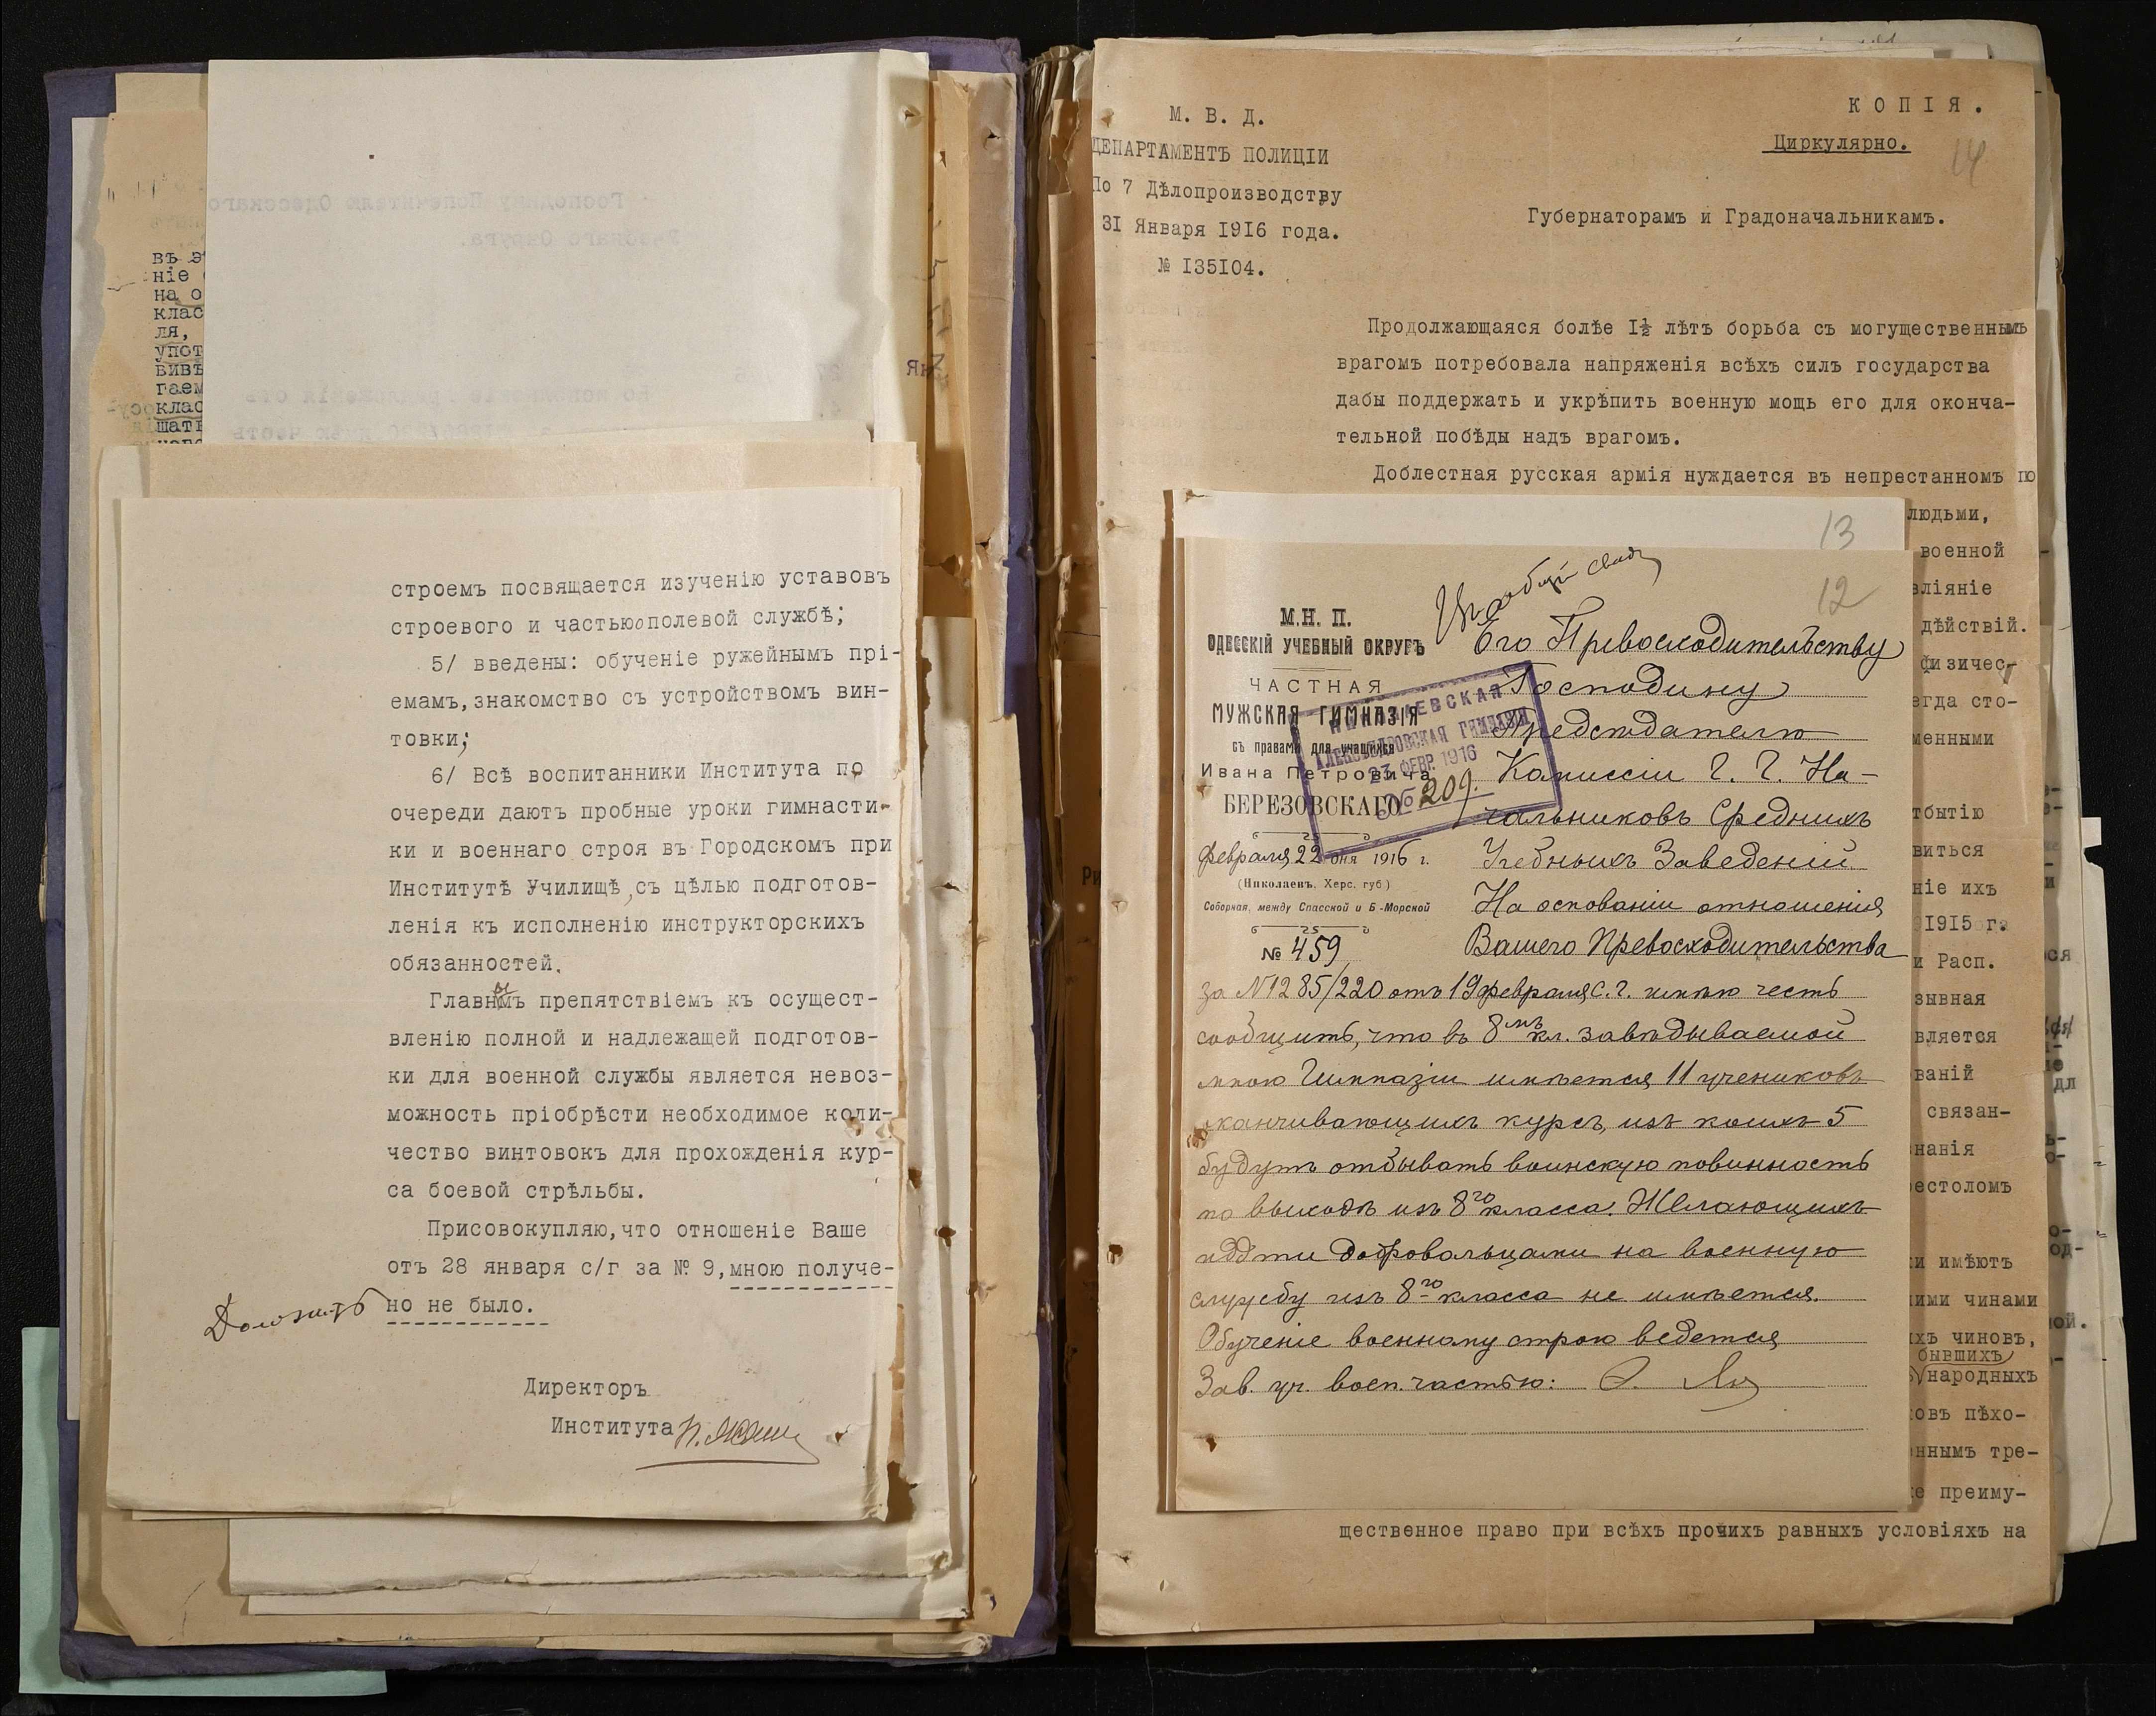 въ э
ніе
на о
клас
ля,
упот
бивъ
гаем
клас
шать
строемъ посвящается изученію уставовъ
строевого и частью о полевой службѣ;
5/ введены: обученіе ружейнымъ прі-
емамъ, знакомство съ устройствомъ вин-
товки;
6/ Всѣ воспитанники Института по
очереди даютъ пробные уроки гимнасти-
ки и военнаго строя въ Городскомъ при
Институтѣ Училищѣ, съ цѣлью подготов-
ленія къ исполненію инструкторскихъ
обязанностей.
Главнымъ препятствіемъ къ осущест-
вленію полной и надлежащей подготов-
ки для военной службы является невоз-
можность пріобрѣсти необходимое коли-
чество винтовокъ для прохожденія кур-
са боевой стрѣльбы.
Присовокупляю, что отношеніе Ваше
отъ 28 января с/г за № 9, мною получе-
но не было.
Доложить
Директоръ
Института
М. В. Д.
ДЕПАРТАМЕНТЪ ПОЛИЦІИ
По 7 Дѣлопроизводству
31 Января 1916 года.
№ 135104.
КОПІЯ.
Циркулярно.
14
Губернаторамъ и Градоначальникамъ.
Продолжающаяся болѣе 1½ лѣтъ борьба съ могущественнымъ
врагомъ потребовала напряженія всѣхъ силъ государства
дабы поддержать и укрѣпить военную мощь его для оконча-
тельной побѣды надъ врагомъ.
Доблестная русская армія нуждается въ непрестанномъ по
людьми,
военной
вліяніе
дѣйствій.
физичес-
егда сто-
менными
тбытію
виться
ніе ихъ
1915 г.
и Расп.
зывная
вляется
ваній
связан-
нанія
рестоломъ
ки имѣютъ
ими чинами
хъ чиновъ,
бывшихъ
народныхъ
овъ пѣхо-
ннымъ тре-
е преиму-
щественное право при всѣхъ прочихъ равныхъ условіяхъ на
13
12
М. Н. П.
ОДЕССКІЙ УЧЕБНЫЙ ОКРУГЪ
ЧАСТНАЯ
МУЖСКАЯ ГИМНАЗІЯ
съ правами для учащихся
Ивана Петровича
БЕРЕЗОВСКАГО
Февраля 22 дня 1916 г.
(Николаевъ, Херс. губ)
Соборная, между Спасской и Б-Морской
№ 459
НИКОЛАЕВСКАЯ
АЛЕКСАНДРОВСКАЯ ГИМНАЗІЯ
23 ФЕВР. 1916
209.
Его Превосходительству
Господину
Предсѣдателю
Комиссіи Г. Г. На-
чальниковъ Среднихъ
Учебныхъ Заведеній.
На основаніи отношенія
Вашего Превосходительства
за №1285/220 отъ 19 февраля с. г. имѣю честь
сообщить, что въ 8мъ кл. завѣдываемой
мною Гимназіи имѣется 11 учениковъ
оканчивающихъ курсъ, изъ коихъ 5
будутъ отбывать воинскую повинность
по выходѣ изъ 8го класса. Желающихъ
идти добровольцами на военную
службу изъ 8го класса не имѣется.
Обученіе военному строю ведется
Зав. уч. воен. частью: